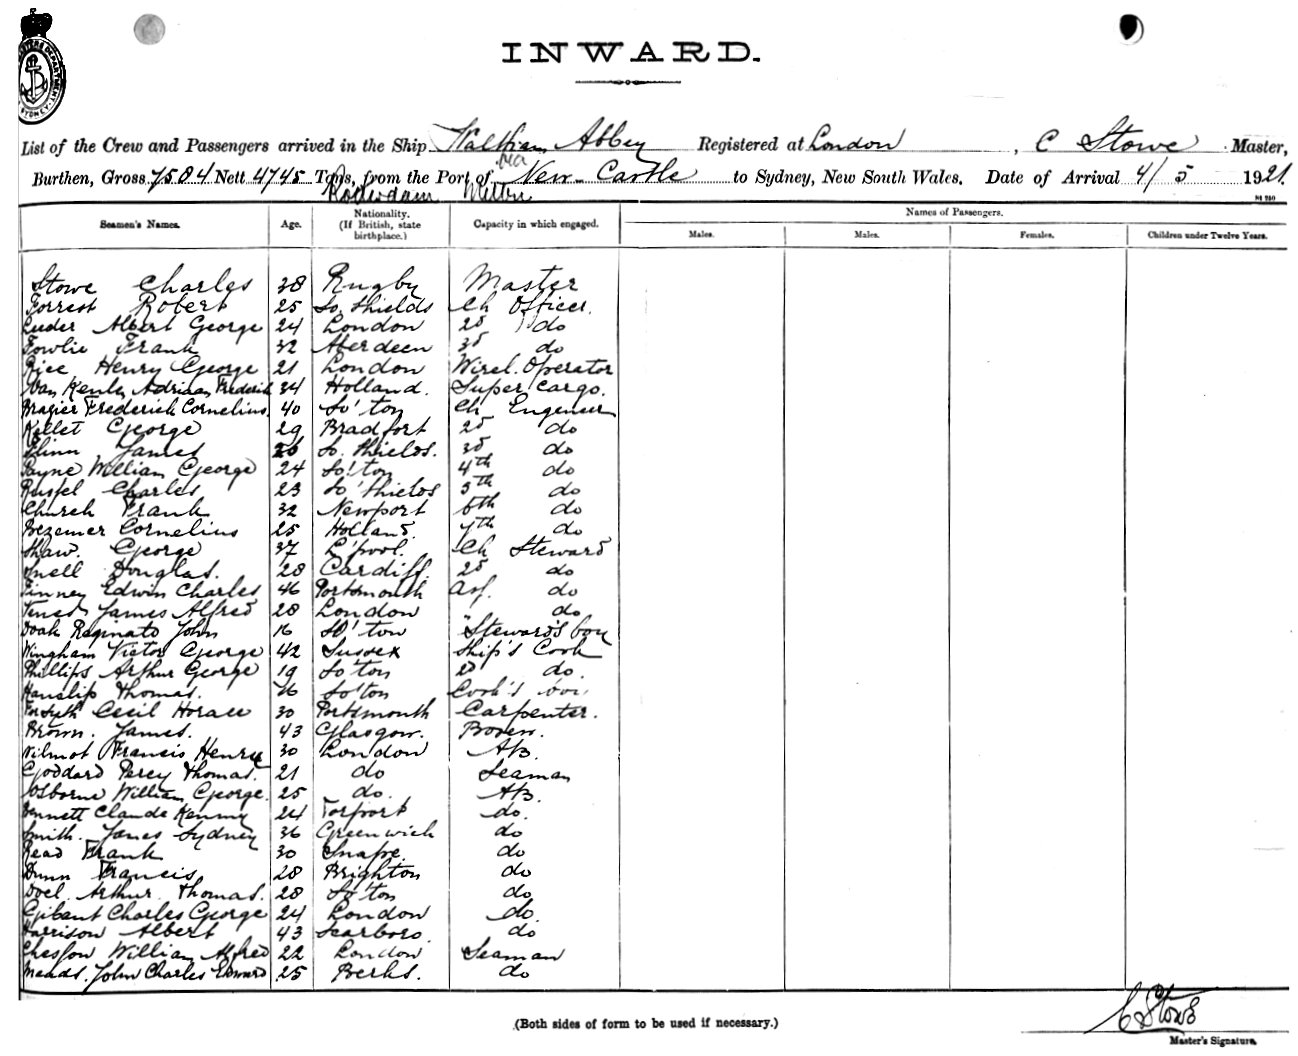 INWARD.
List of the Crew and Passengers arrived in the Ship Waltham Abbey Registered at London, C Stowe Master,
Burthen, Gross 7584 Nett 4745 Tons, from the Port of New-Castle to Sydney, New South Wales. Date of Arrival 4/5 1921.
Rotterdam via
Seamen's Names. Age. Nationality. (If British, state birthplace.) Capacity in which engaged. Names of Passengers.
Males. Males. Females. Children under Twelve Years.
Stowe Charles 38 Rugby Master
Forrest Robert 25 So. Shields Ch Officer.
Albert George 24 London 2d do
Fowlie Frank 32 Aberdeen 3d do
Rice Henry George 21 London Wirel. Operator
Van Adriaan Frederik 34 Holland. Super Cargo.
Brazier Frederick Cornelius. 40 So'ton Ch Engineer
Kellet George 29 Bradfort 2d do
Flinn James 26 So. Shields. 3d do
Payne William George 24 So'ton 4th do
Russel Charles 23 So'Shields 5th do
Church Frank 32 Newport 6th do
Bezemer Cornelius 25 Holland. 7th do
Shaw. George 37 L'pool. Ch Steward
Snell Douglas. 28 Cardiff. 2d do
Finney Edwin Charles 46 Portsmouth Ass. do
James Alfred 28 London do
Doak Reginald John 16 So'ton Steward's boy
Wingham Victor George 42 Sussex Ship's Cook
Phillips Arthur George 19 So'ton 2d do.
Hanslip Thomas. 16 So'ton Cook's boy
Forsyth Cecil Horace 30 Portsmouth Carpenter.
Brown. James. 43 Glasgow. Bosen.
Wilmot Francis Henry 30 London AB.
Goddard Percy Thomas. 21 do Seaman
Osborne William George. 25 do. AB.
Bennett Claude 24 Torport do.
Smith. James Sydney 36 Greenwich do
Read Frank 30 Snape. do
Dunn Francis 28 Brighton do
Doel. Arthur. Thomas. 28 So'ton do
Charles George 24 London do.
Harrison Albert 43 Scarboro. do
Chesson William Alfred 22 London Seaman
Meads. John Charles Edward 25 Berks. do
(Both sides of form to be used if necessary.)
C Stowe
Master's Signature.